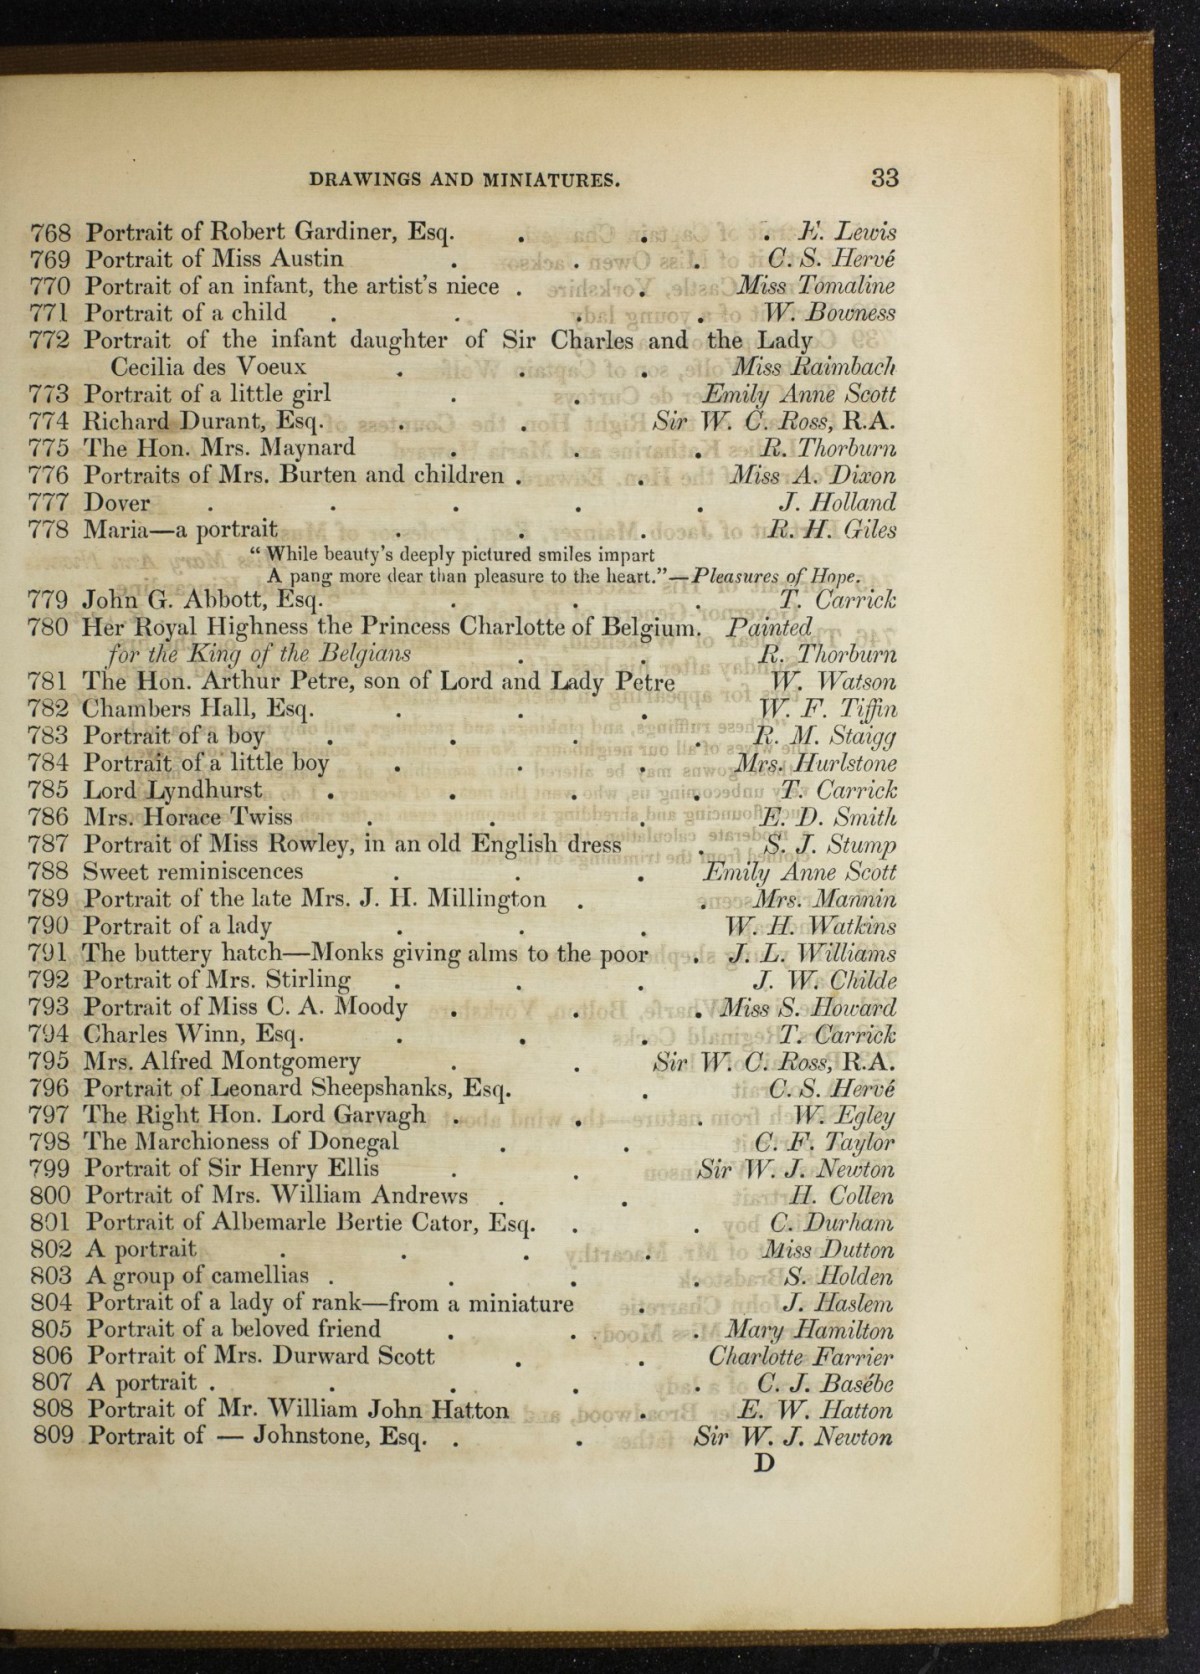 DRAWINGS AND MINIATURES. 33
768 Portrait of Robert Gardiner, Esq. . . . E. Lewis
769 Portrait of Miss Austin . . . C. S. Hervé
770 Portrait of an infant, the artist's niece . . Miss Tomaline
771 Portrait of a child . . . . W. Bowness
772 Portrait of the infant daughter of Sir Charles and the Lady
Cecilia des Voeux . . . Miss Raimbach
773 Portrait of a little girl . . Emily Anne Scott
774 Richard Durant, Esq. . . Sir W. C. Ross, R.A.
775 The Hon. Mrs. Maynard . . . R. Thorburn
776 Portraits of Mrs. Burten and children . . Miss A. Dixon
777 Dover . . . . . J. Holland
778 Maria—a portrait . . . R. H. Giles
“ While beauty's deeply pictured smiles impart
A pang more dear than pleasure to the heart.”—Pleasures of Hope.
779 John G. Abbott, Esq. . . . T. Carrick
780 Her Royal Highness the Princess Charlotte of Belgium. Painted
for the King of the Belgians . . R. Thorburn
781 The Hon. Arthur Petre, son of Lord and Lady Petre W. Watson
782 Chambers Hall, Esq. . . . W. F. Tiffin
783 Portrait of a boy . . . . R. M. Staigg
784 Portrait of a little boy . . . Mrs. Hurlstone
785 Lord Lyndhurst . . . . T. Carrick
786 Mrs. Horace Twiss . . . E. D. Smith
787 Portrait of Miss Rowley, in an old English dress . S. J. Stump
788 Sweet reminiscences . . . Emily Anne Scott
789 Portrait of the late Mrs. J. H. Millington . . Mrs. Mannin
790 Portrait of a lady . . . W. H. Watkins
791 The buttery hatch—Monks giving alms to the poor . J. L. Williams
792 Portrait of Mrs. Stirling . . . J. W. Childe
793 Portrait of Miss C. A. Moody . . . Miss S. Howard
794 Charles Winn, Esq. . . . T. Carrick
795 Mrs. Alfred Montgomery . . Sir W. C. Ross, R.A.
796 Portrait of Leonard Sheepshanks, Esq. . C. S. Hervé
797 The Right Hon. Lord Garvagh . . . W. Egley
798 The Marchioness of Donegal . . C. F. Taylor
799 Portrait of Sir Henry Ellis . . Sir W. J. Newton
800 Portrait of Mrs. William Andrews . . H. Collen
801 Portrait of Albemarle Bertie Cator, Esq. . . C. Durham
802 A portrait . . . . Miss Dutton
803 A group of camellias . . . . S. Holden
804 Portrait of a lady of rank—from a miniature . J. Haslem
805 Portrait of a beloved friend . . . Mary Hamilton
806 Portrait of Mrs. Durward Scott . . Charlotte Farrier
807 A portrait . . . . . C. J. Basébe
808 Portrait of Mr. William John Hatton . E. W. Hatton
809 Portrait of — Johnstone, Esq. . . Sir W. J. Newton
D